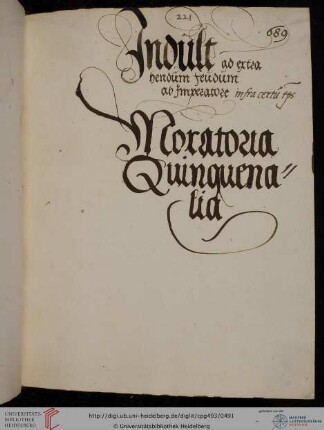 221
689
Indult ad extra
hendum feudum
ab Imperatore infra certũ tp̃s
Moratoria
Quinquena=
lia
UNIVERSITÄTS-
BIBLIOTHEK
HEIDELBERG
http://digi.ub.uni-heidelberg.de/diglit/cpg493/0491
© Universitätsbibliothek Heidelberg